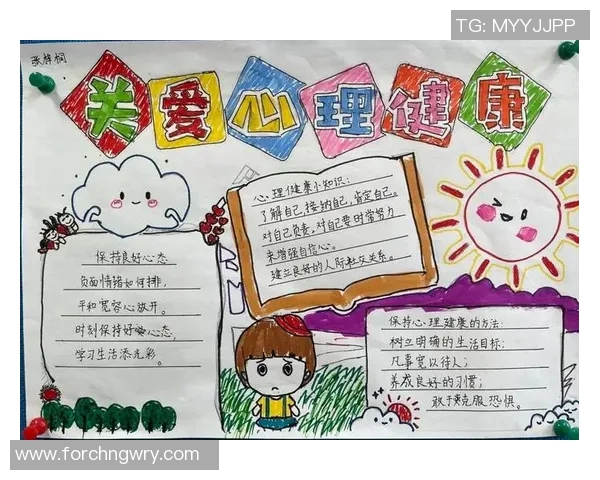 TG: MYYJJPP
关爱心理健康
心理健康小知识:
了解自己,接纳自己,肯定自己。
对自己负责,对自己要时常努力
来增强自信心。
建立良好的人际社交关系。
保持良好心态
负面情绪如何排,
平和宽容心放开。
时刻保持好心态,
学习生活添光彩。
保持心理健康的方法:
树立明确的生活目标;
凡事宽以待人;
养成良好的习惯;
敢于克服恐惧。
www.forchngwry.com